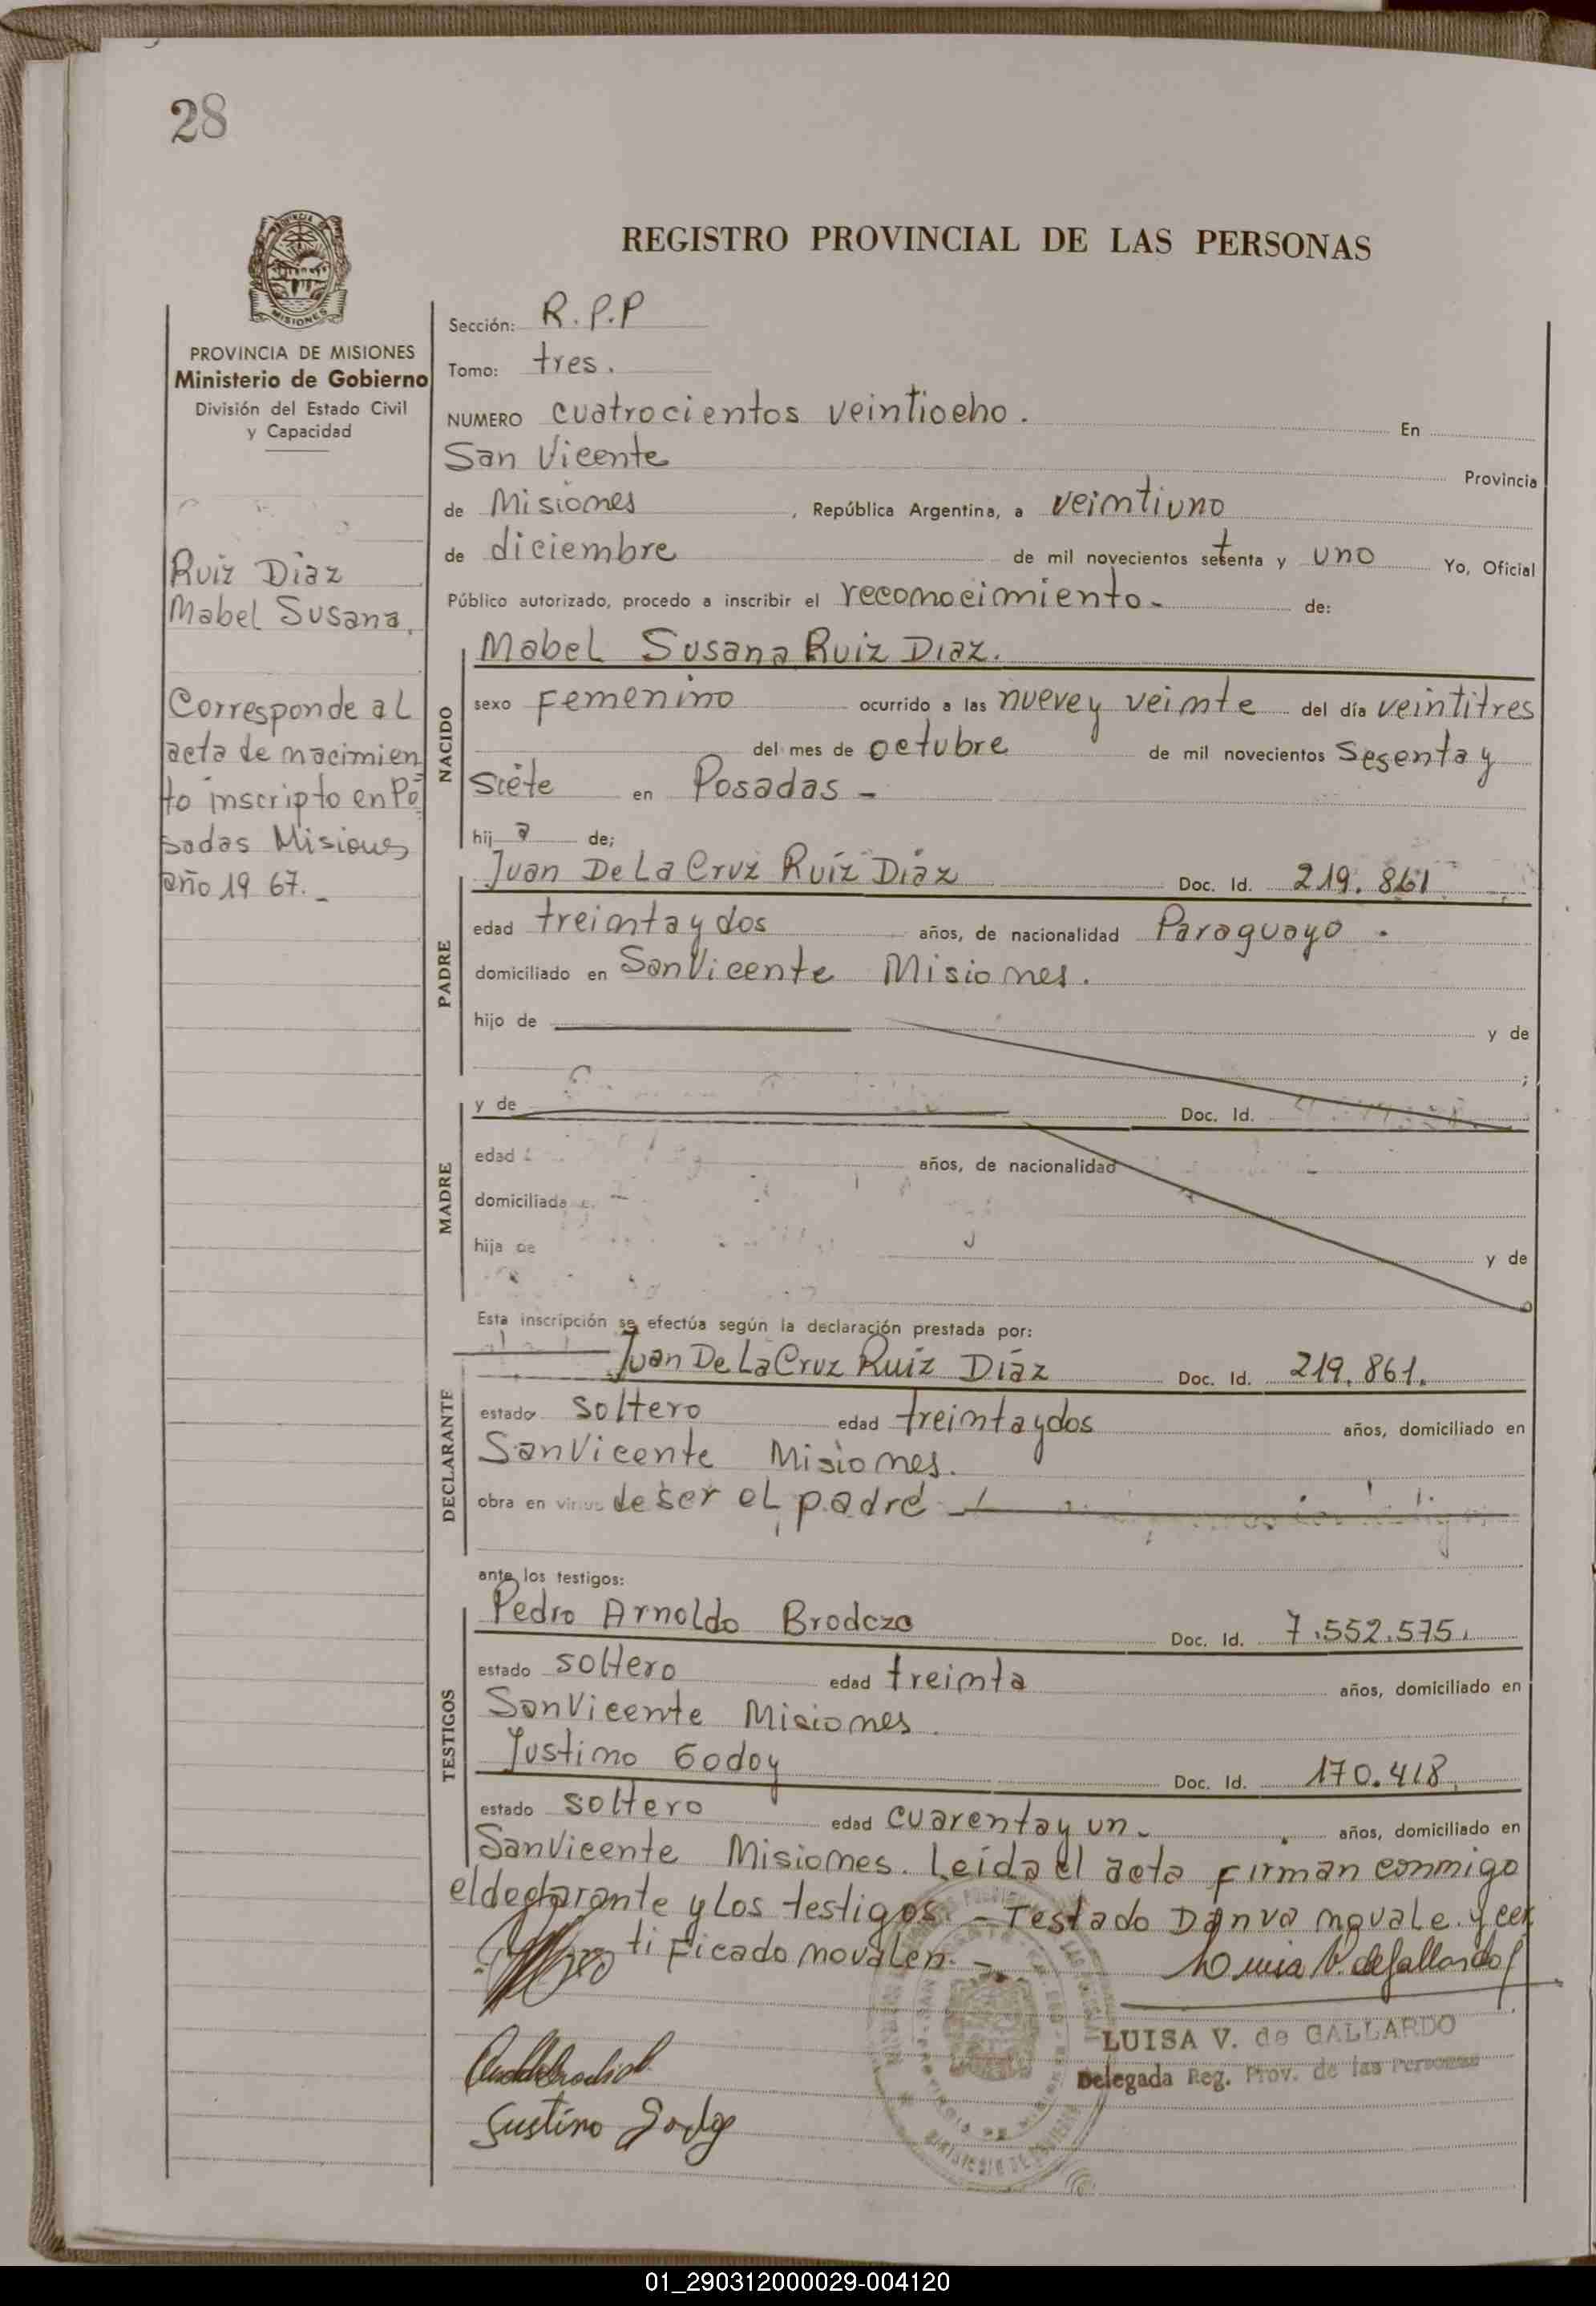 28
REGISTRO PROVINCIAL DE LAS PERSONAS
MISIONES
PROVINCIA DE MISIONES
Ministerio de Gobierno
División del Estado Civil
y Capacidad
Ruiz Diaz
Mabel Susana.
Corresponde al
acta de nacimien
to inscripto en Po
sadas Misiones
año 19 67. -
Sección: R.P.P
Tomo: tres.
NUMERO cuatrocientos veintiocho. En
San Vicente Provincia
de Misiones, República Argentina, a veintiuno
de diciembre de mil novecientos setenta y uno Yo, Oficial
Público autorizado, procedo a inscribir el reconocimiento- de:
NACIDO
Mabel Susana Ruiz Diaz.
sexo Femenino ocurrido a las nueve y veinte del día veintitres
del mes de octubre de mil novecientos Sesenta y
Siete en Posadas -
hij a de;
PADRE
Juan De La Cruz Ruíz Díaz Doc. Id. 219.861
edad treinta y dos años, de nacionalidad Paraguayo.
domiciliado en San Vicente Misiones.
hijo de y de
;
MADRE
y de Doc. Id.
edad años, de nacionalidad
domiciliada
hija de y de
Esta inscripción se efectúa según la declaración prestada por:
DECLARANTE
Juan De La Cruz Ruíz Díaz Doc. Id. 219.861.
estado soltero edad treinta y dos años, domiciliado en
San Vicente Misiones.
obra en virtud de ser el padre
ante los testigos:
TESTIGOS
Pedro Arnoldo Brodczo Doc. Id. 7.552.575.
estado soltero edad treinta años, domiciliado en
San Vicente Misiones.
Justino Godoy Doc. Id. 170.418.
estado soltero edad cuarenta y un- años, domiciliado en
San Vicente Misiones. Leída el acta firman conmigo
el declarante y los testigos.- Testado Danva no vale. y cer
tificado no valen.-
Luisa V. de Gallardo
LUISA V. de GALLARDO
Delegada Reg. Prov. de las Personas
Justino Godoy
01_290312000029-004120